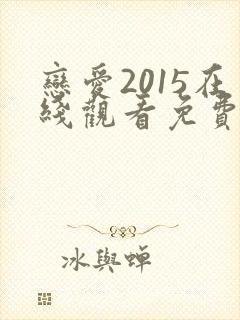 戀愛2015在
綫觀看免費
冰與蟬